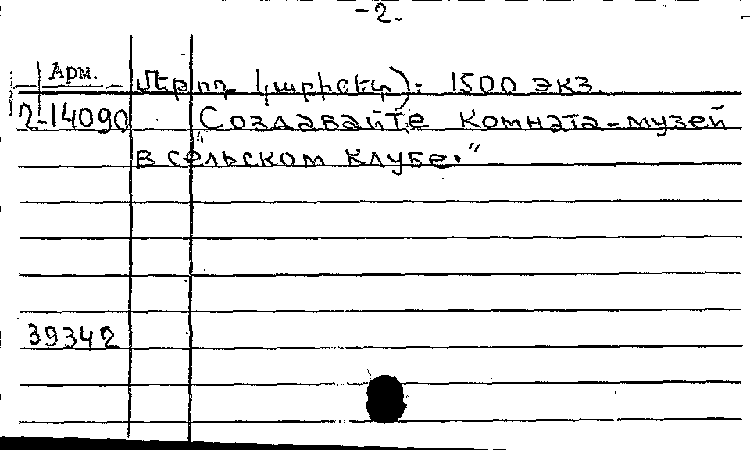 -2.
Арм.
մեթոդ. կաբինետ): 1500 экз.
2-14090 "Создавайте комната-музей
в сельском клубе."
39342